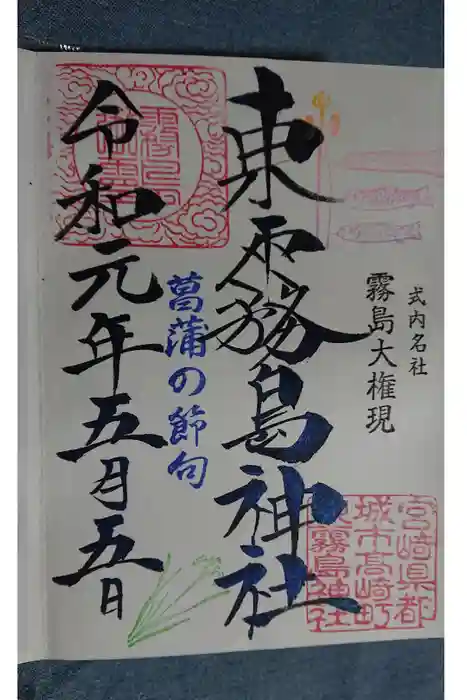 式内名社
霧島大権現
東霧島神社
菖蒲の節句
令和元年五月五日
宮崎県都
城市高崎町
東霧島神社